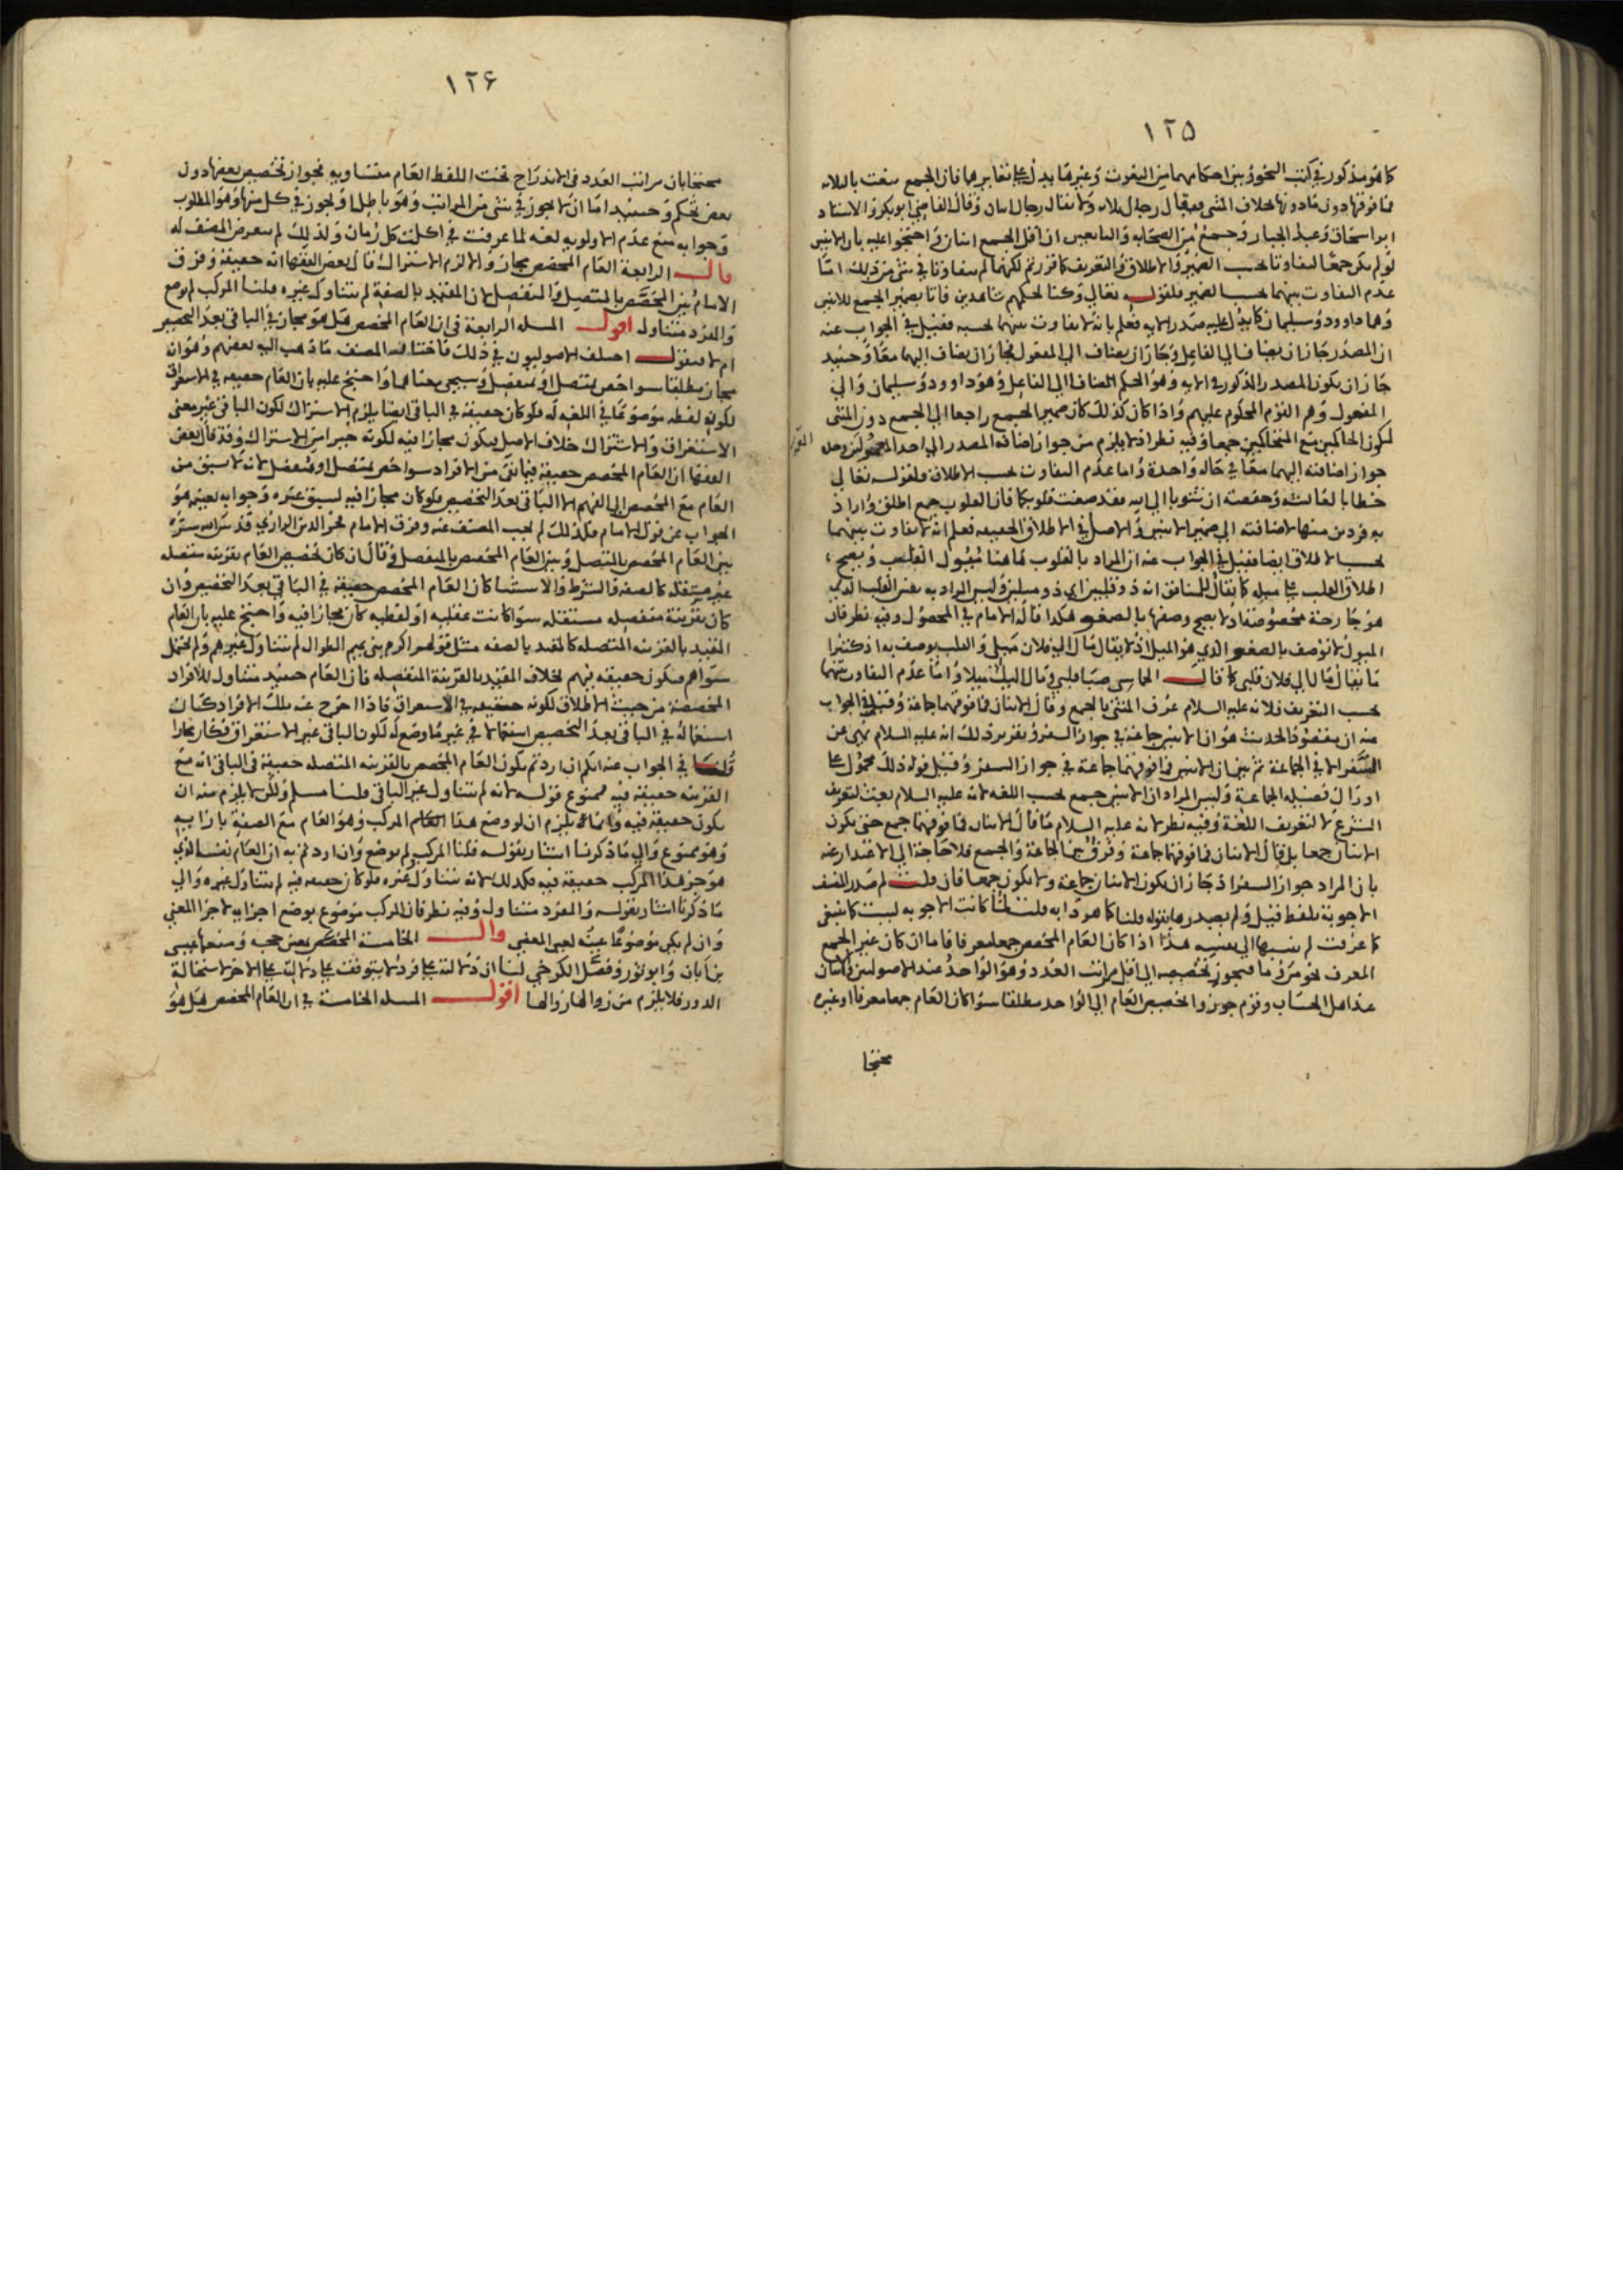 ١٢٥
كما هو مذكور في كتب النحو وبين احكامهما من النعوت وغيرها يدل على تغايرهما فان الجمع ينعت بالثلاثة
فما فوقها دون ما دونها بخلاف المثنى فيقال رجال ثلاثة ولا يقال رجال اثنان وقال القاضي ابو بكر والاستاد
ابو اسحاق وعبد الجبار وجمع من الصحابة والتابعين ان اقل الجمع اثنان واحتجوا عليه بان الاثنين
لو لم يكن جمعا لتفاوتا بحسب الضمير والاطلاق والتعريف كما قررتم لكنهما لم يتفاوتا في شي من ذلك اما
عدم التفاوت بينهما بحسب الضمير فلقوله تعالى وكنا لحكمهم شاهدين فاتا بضمير الجمع للاثنين
وهما داوود وسليمان كما يدل عليه صدر الاية فعلم بانه لا تفاوت بينهما بحسبه فقيل في الجواب عنه
ان المصدر جاز ان يضاف الى الفاعل وجاز ان يضاف الى المفعول فجاز ان يضاف اليهما معا وحينيد
جاز ان يكون المصدر المذكور في الاية وهو الحكم المضاف الى الفاعل وهو داوود وسليمان والى
المفعول وهم القوم المحكوم عليهم واذا كان كذلك كان ضمير الجمع راجعا الى الجمع دون المثنى
لكون الحاكمين مع المتحاكمين جمعا وفيه نظر اذ لا يلزم من جواز اضافة المصدر الى احد المعمولين وحده
جواز اضافته اليهما معا في حالة واحدة واما عدم التفاوت بحسب الاطلاق فلقوله تعالى
خطابا لعائشة وحفصة ان تتوبا الى الله فقد صغت قلوبكما فان القلوب جمع اطلق واراد
به فردين منها لاضافته الى ضمير الاثنين والاصل في الاطلاق الحقيقة فعلم انه لا تفاوت بينهما
بحسب الاطلاق ايضا فقيل في الجواب عنه ان المراد بالقلوب هاهنا ميول القلب ويصح
اطلاق القلب على ميله كما يقال للمنافق انه ذو قلبين اي ذو ميلين وليس المراد به نفس القلب الذي
هو جارحة مخصوصة اذ لا يصح وصفها بالصغو هكذا قاله الامام في المحصول وفيه نظر فان
الميول لا توصف بالصغو الذي هو الميل اذ لا يقال مال الى فلان ميلي والقلب يوصف به اذ كثيرا
ما يقال مال الى فلان قلبي كما قال الحماسي صبا قلبي ومال اليك ميلا واما عدم التفاوت بينهما
بحسب التعريف فلانه عليه السلام عرف المثنى بالجمع وقال الاثنان فما فوقهما جماعة وقيل في الجواب
عنه ان مقصود الحديث هو ان الاثنين جماعة في جواز السفر وتقرير ذلك انه عليه السلام نهى عن
السفر الا في الجماعة ثم بين ان الاثنين فما فوقهما جماعة في جواز السفر وقيل قوله ذلك محمول على
ادراك فضيلة الجماعة وليس المراد ان الاثنين جمع بحسب اللغة لانه عليه السلام بعث لتعريف
الشرع لا لتعريف اللغة وفيه نظر لانه عليه السلام ما قال الاثنان فما فوقهما جمع حتى يكون
الاثنان جمعا بل قال الاثنان فما فوقهما جماعة وفرق بين الجماعة والجمع فلا حاجة الى الاعتذار عنه
بان المراد جواز السفر اذ جاز ان يكون الاثنان جماعة ولا يكون جمعا فان قلت لم صدر المصنف
الاجوبة بلفظ قيل ولم يصدرها بقوله قلنا كما هو دابه قلت لما كانت الاجوبة ليست كما ينبغي
كما عرفت لم ينسبها الى نفسه هذا اذا كان العام المخصص جمعا معرفا فاما ان كان غير الجمع
المعرف نحو من وما فيجوز تخصيصه الى اقل مراتب العدد وهو الواحد عند الاصوليين والاثنان
عند اهل الحساب وقوم جوزوا تخصيص العام الى الواحد مطلقا سوا كان العام جمعا معرفا او غيره
محتجا
١٢۶
محتجا بان مراتب العدد في الاندراج تحت اللفظ العام متساوية فجواز تخصيص بعضها دون
بعض تحكم وحينيد اما ان لا يجوز في شي من المراتب وهو باطل او يجوز في كل منها وهو المطلوب
وجوابه منع عدم الاولوية لغة لما عرفت في اكلت كل رمان ولذلك لم يتعرض المصنف له
قال الرابعة العام المخصص مجاز والا لزم الاشتراك قال بعض الفقها انه حقيقة وفرق
الامام بين المخصص بالمتصل والمنفصل لان المقيد بالصفة لم يتناول غيره قلنا المركب لم يوضع
والمفرد متناول اقول المسلة الرابعة في ان العام المخصص هل هو مجاز في الباقي بعد التخصيص
ام لا فنقول اختلف الاصوليون في ذلك فاختار المصنف ما ذهب اليه بعضهم وهو انه
مجاز مطلقا سوا خص بمتصل او منفصل وسيجي بعنا هما واحتج عليه بان العام حقيقة في الاستغراق
لكون لفظه موضوعا في اللغة له فلو كان حقيقة في الباقي ايضا يلزم الاشتراك لكون الباقي غير معنى
الاستغراق والاشتراك خلاف الاصل فيكون مجازا فيه لكونه خيرا من الاشتراك وقد قال بعض
الفقها ان العام المخصص حقيقة فيما بقى من الافراد سوا خص بمتصل او منفصل لانه لا يسبق من
العام مع المخصص الى الفهم الا الباقي بعد التخصيص فلو كان مجازا فيه لسبق غيره وجوابه بعينه هو
الجواب عن قول الامام فلذلك لم يجب المصنف عنه وفرق الامام فخر الدين الرازي قدس الله سره
بين العام المخصص بالمتصل وبين العام المخصص بالمنفصل وقال ان كان تخصيص العام بقرينة متصلة
غير مستقلة كالصفة والشرط والاستثنا كان العام المخصص حقيقة في الباقي بعد التخصيص وان
كان بقرينة منفصلة مستقلة سوا كانت عقلية او لفظية كان مجازا فيه واحتج عليه بان العام
المقيد بالقرينة المتصلة كالمقيد بالصفة مثل قولهم اكرم بني تميم الطوال لم يتناول غيرهم ولم يحتمل
سواهم فيكون حقيقة فيهم بخلاف المقيد بالقرينة المنفصلة فان العام حينيد متناول للافراد
المخصصة من حيث الاطلاق لكونه حقيقة في الاستغراق فاذا اخرج عنه تلك الافراد كان
استعماله في الباقي بعد التخصيص استعمالا في غير ما وضع له لكون الباقي غير الاستغراق فكان مجازا
قلنا في الجواب عنه انكم ان اردتم بكون العام المخصص بالقرينة المتصلة حقيقة في الباقي انه مع
القرينة حقيقة فيه فممنوع قوله لانه لم يتناول غير الباقي قلنا مسلم ولكن لا يلزم منه ان
يكون حقيقة فيه وانما يلزم ان لو وضع هذا العام المركب وهو العام مع الصفة بازايه
وهو ممنوع والى ما ذكرنا اشار بقوله قلنا المركب لم يوضع وان اردتم به ان العام نفسه الذي
هو جز هذا المركب حقيقة فيه فكذلك لانه متناول غيره فلو كان حقيقة فيه لم يتناول غيره والى
ما ذكرنا اشار بقوله والمفرد متناول وفيه نظر فان المركب موضوع بوضع اجزايه لاجزا المعنى
وان لم يكن موضوعا عينه لعين المعنى قال الخامسة المخصص بمعين حجة ومنعها عيسى
بن ابان وابو ثور وفصل الكرخي لنا ان دلالته على فرد لا يتوقف على دلالته على الاخر لاستحالة
الدور فلا يلزم من زوالها زوالها اقول المسلة الخامسة في ان العام المخصص هل هو